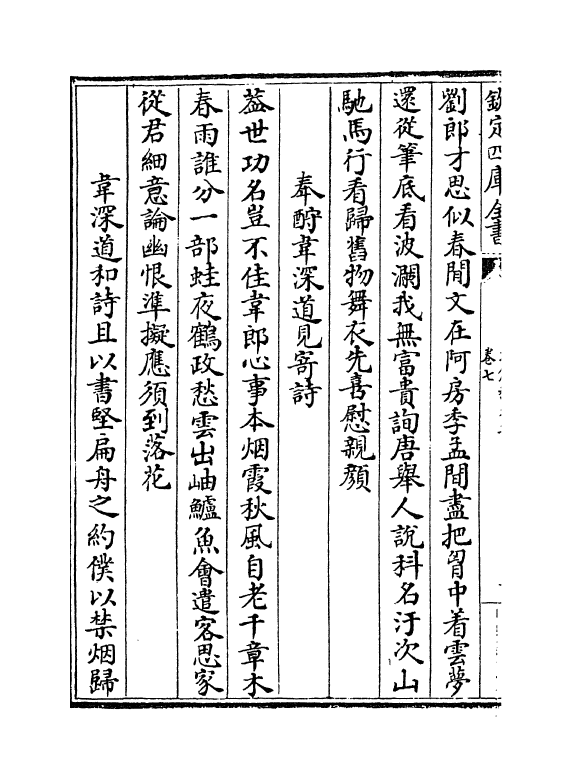 欽定四庫全書
卷七
劉郎才思似春閒文在阿房季孟間盡把胷中着雲夢
還從筆底看波瀾我無富貴詢唐舉人說科名汙次山
馳馬行看歸舊物舞衣先喜慰親顔
奉酧韋深道見寄詩
葢世功名豈不佳韋郎心事本烟霞秋風自老千章木
春雨誰分一部蛙夜鶴政愁雲出岫鱸魚會遣客思家
從君細意論幽恨準擬應須到落花
韋深道和詩且以書堅扁舟之約僕以禁烟歸